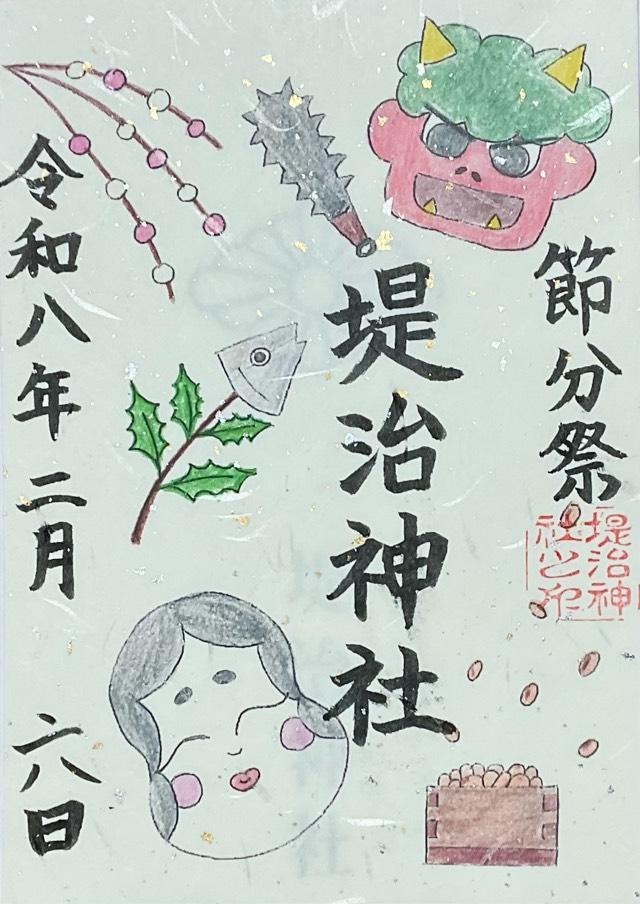 節分祭
堤治神社之印
堤治神社
令和八年二月
六日